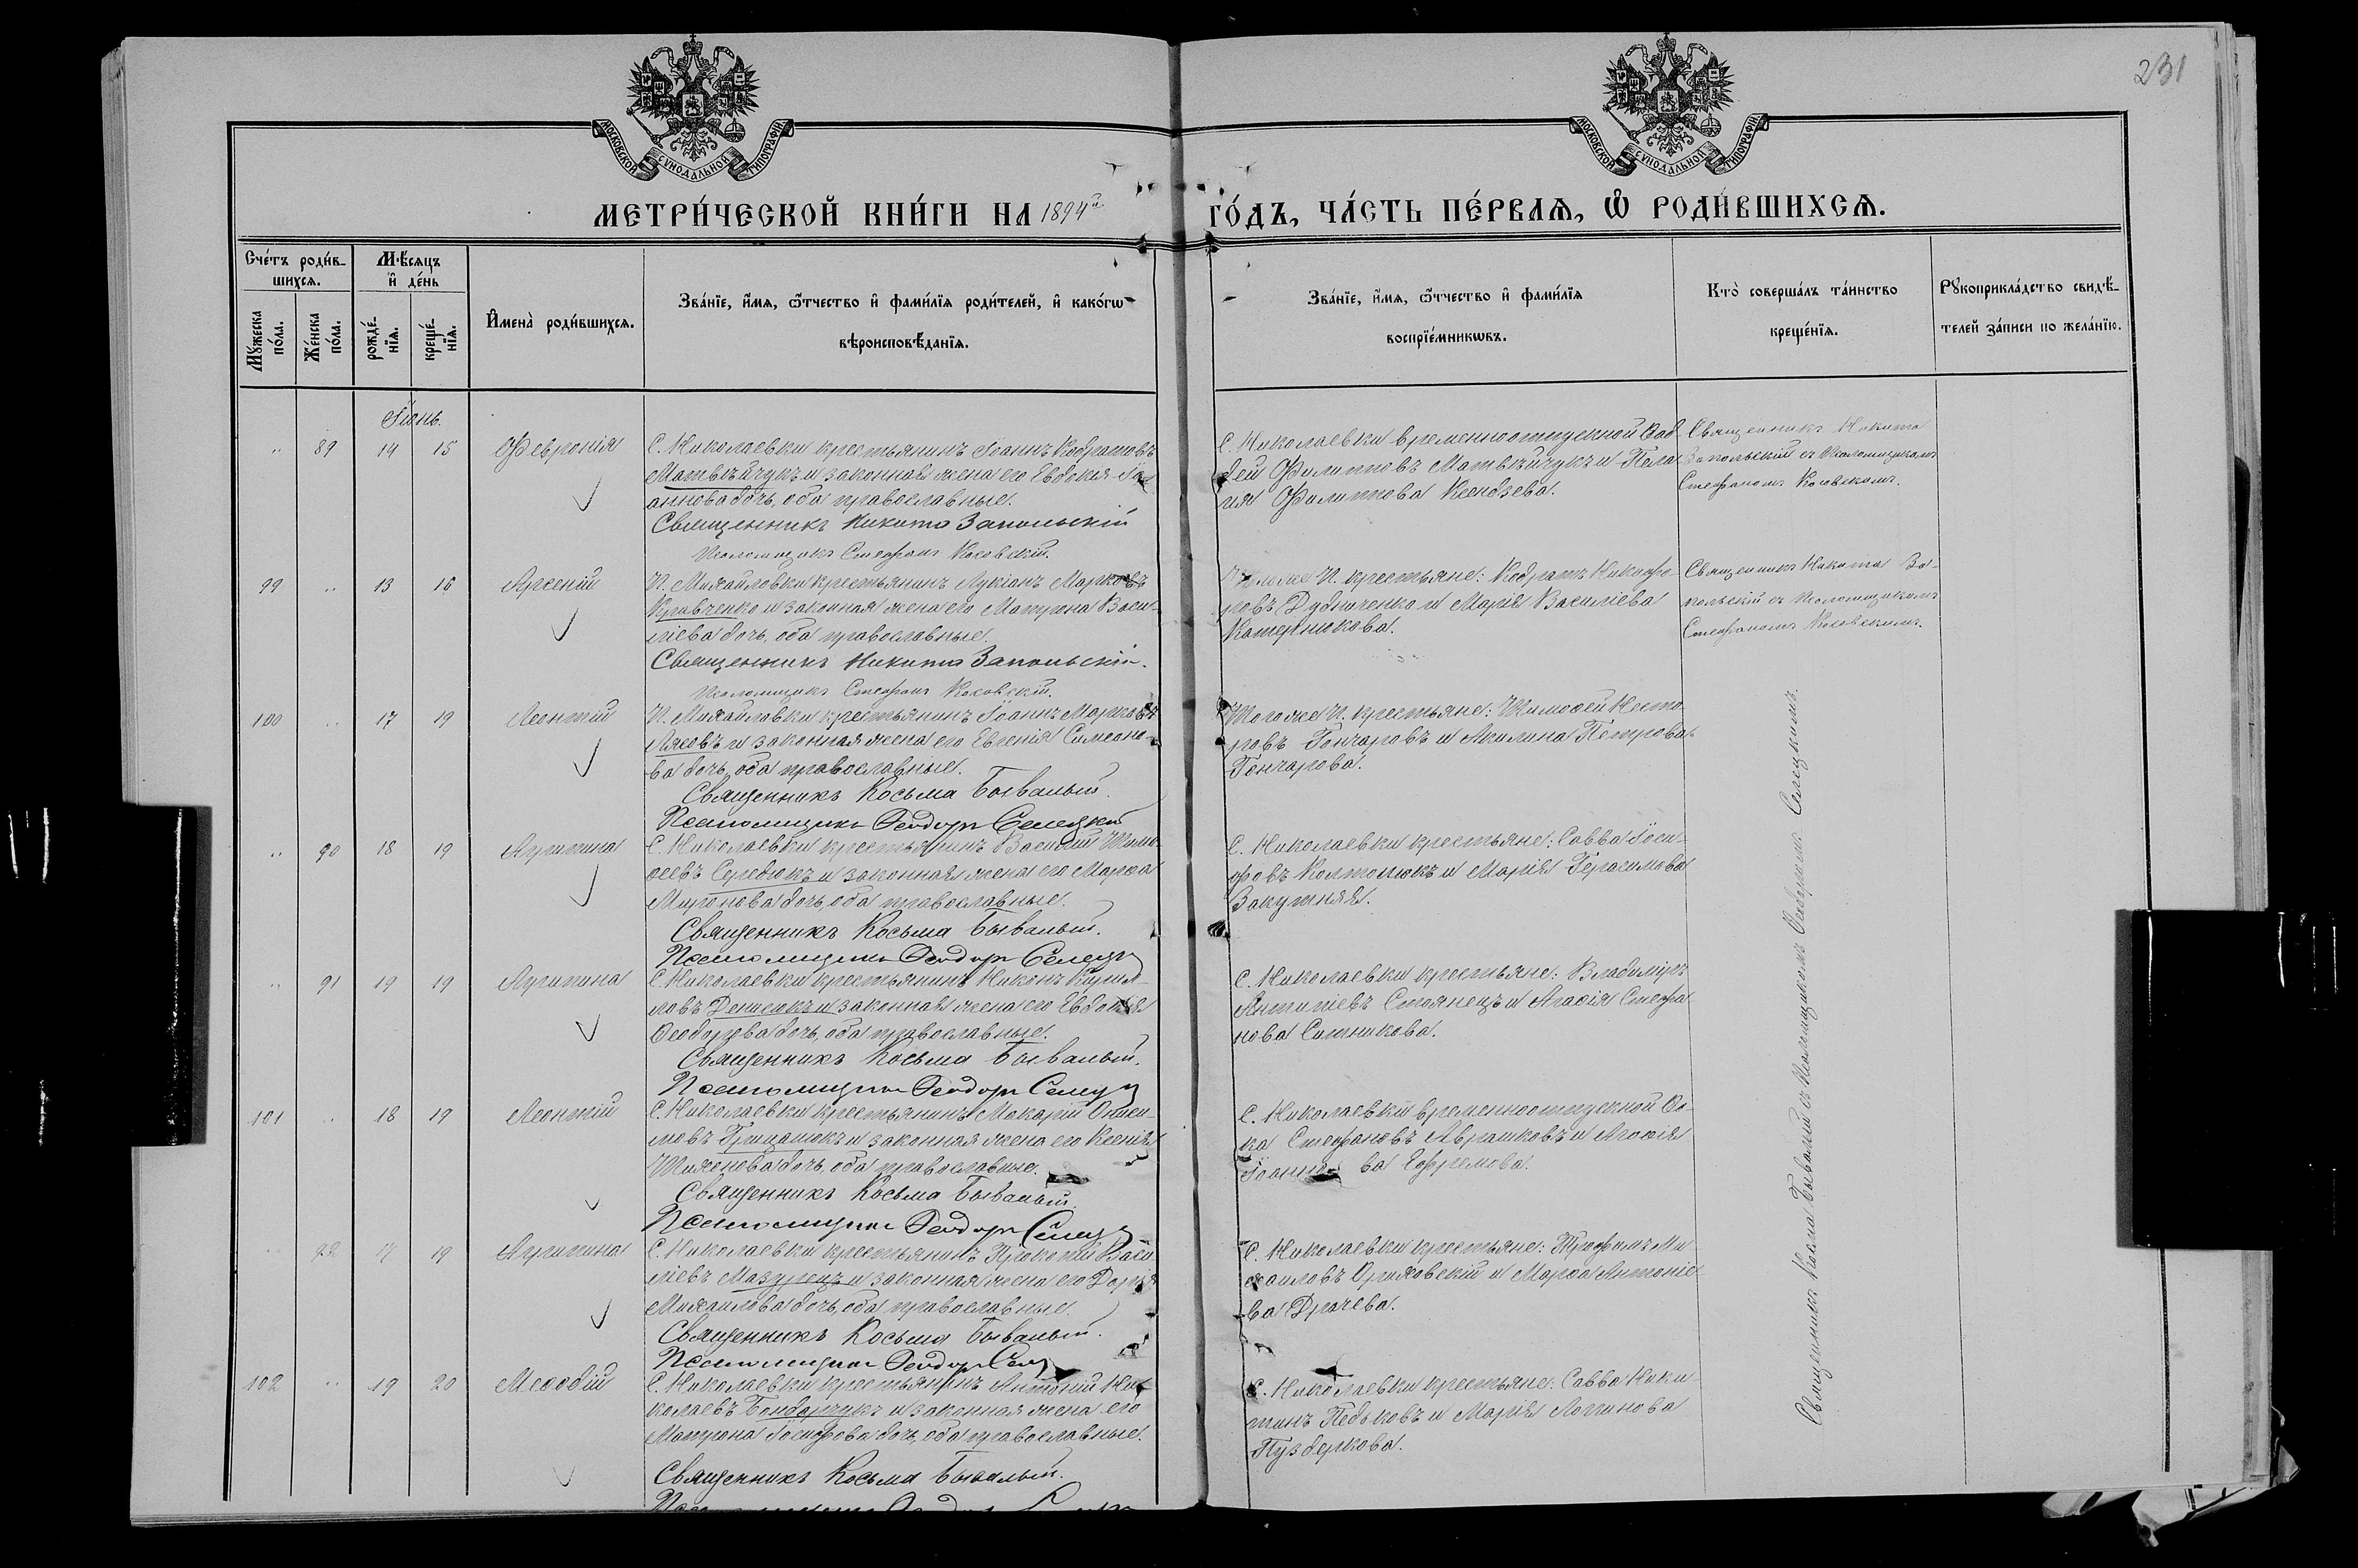 231
МОСКОВСКОЙ СѴНОДАЛЬНОЙ ТИПОГРАФІИ
МОСКОВСКОЙ СѴНОДАЛЬНОЙ ТИПОГРАФІИ
МЕТРИ́ЧЕСКОЙ КНИ́ГИ НА 1894й
ГО́ДЪ, ЧА́СТЬ ПЕ́РВАЯ, Ѽ РОДИ́ВШИХСЯ.
Сче́тъ роди́в-
шихся.
Мѣ́сяцъ
и҆ де́нь
Мꙋ́жеска
по́ла.
Же́нска
по́ла.
рожде́-
нїя.
креще́-
нїя.
И҆мена̀ роди́вшихся.
Зва́нїе, и҆́мя, ѻ҆́тчество и҆ фами́лїя роди́телей, и҆ како́гѡ
вѣроисповѣ́данїя.
Зва́нїе, и҆́мя, ѻ҆́тчество и҆ фами́лїя
воспрїе́мникѡвъ.
Кто̀ соверша́лъ та́инство
креще́нїя.
Рꙋкоприкла́дство свидѣ́-
телей за́писи по жела́нїю.
Іюнь.
" 89 14 15 Февронія
С. Николаевки крестьянинъ Іоаннъ Кодратовъ
Матвѣйчукъ и законная жена его Евдокія Іо-
аннова дочь, оба православные.
Священникъ Никита Запольскій
Псаломщикъ Стефанъ Косовскій.
С. Николаевки временноотпускной
Филипповъ Матвѣйчукъ и Пела-
гія Филиппова
Священникъ Никита
Запольскій съ Псаломщикомъ
Стефаномъ Косовскимъ.
99 " 13 16 Арсеній
П. Михайловки крестьянинъ Лукіанъ Марковъ
Кравченко и законная жена его Матрона Васи-
ліева дочь, оба православные.
Священникъ Никита Запольскій.
Псаломщикъ Стефанъ Косовскій.
П. крестьяне: Кодратъ Никифо-
ровъ Дудниченко и Марія Василіева
Катернюкова.
Священникъ Никита За-
польскій съ Псаломщикомъ
Стефаномъ Косовскимъ.
100 " 17 19 Леонтій
П. Михайловки крестьянинъ Іоаннъ Марковъ
Лясовъ и законная жена его Евгенія Симеоно-
ва дочь, оба православные.
Священникъ Косьма Бывалый.
Псаломщикъ Ѳеодоръ Селецкій
Тогоже П. крестьяне: Тимоѳей Несто-
ровъ Гончаровъ и Акилина Петрова
Гончарова.
" 90 18 19 Агрипина
С. Николаевки крестьянинъ Василій Тимо-
ѳеевъ Середюкъ и законная жена его Марѳа
Миронова дочь, оба православные.
Священникъ Косьма Бывалый.
Псаломщикъ Ѳеодоръ Селецкій
С. Николаевки крестьяне: Савва Іоси-
фовъ Колтонюкъ и Марія Герасимова
Закутняя.
" 91 19 19 Агрипина
С. Николаевки крестьянинъ Никонъ Кирил-
ловъ Денисюкъ и законная жена его Евдокія
Ѳеодорова дочь, оба православные.
Священникъ Косьма Бывалый.
Псаломщикъ Ѳеодоръ Селецкій
С. Николаевки крестьяне: Владиміръ
Антипіевъ Стоянецъ и Агаѳія Стефа-
нова Ситникова.
101 " 18 19 Леонтій
С. Николаевки крестьянинъ Макарій Ониси-
мовъ Грицатюкъ и законная жена его Ксенія
Тихонова дочь, оба православные.
Священникъ Косьма Бывалый.
Псаломщикъ Ѳеодоръ Селецкій
С. Николаевки временноотпускной Ѳо-
ка Стефановъ Аврашковъ и Агаѳія
Іоаннова Ефремова.
" 92 17 19 Агрипина
С. Николаевки крестьянинъ Прокопій Васи-
ліевъ Мазурецъ и законная жена его Дарія
Михаилова дочь, оба православные.
Священникъ Косьма Бывалый.
Псаломщикъ Ѳеодоръ Селецкій
С. Николаевки крестьяне: Трофимъ Ми-
хаиловъ Ориховскій и Марѳа Антоніе-
ва Драчева.
102 " 19 20 Меѳодій
С. Николаевки крестьянинъ Антоній Ни-
колаевъ Бондарчукъ и законная жена его
Матрона Іосифова дочь, оба православные.
Священникъ Косьма Бывалый.
С. Николаевки крестьяне: Савва Ники-
тинъ Педьковъ и Марія Логинова
Пуздеркова.
Священникъ Косма Бывалый съ Псаломщикомъ Ѳеодоромъ Селецкимъ.